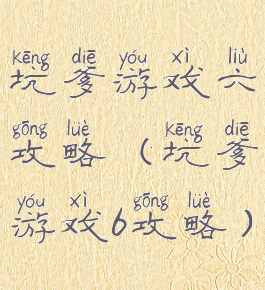 kēng diē yóu xì liù
坑爹游戏六
gōng lüè kēng diē
攻略（坑爹
yóu xì gōng lüè
游戏6攻略）